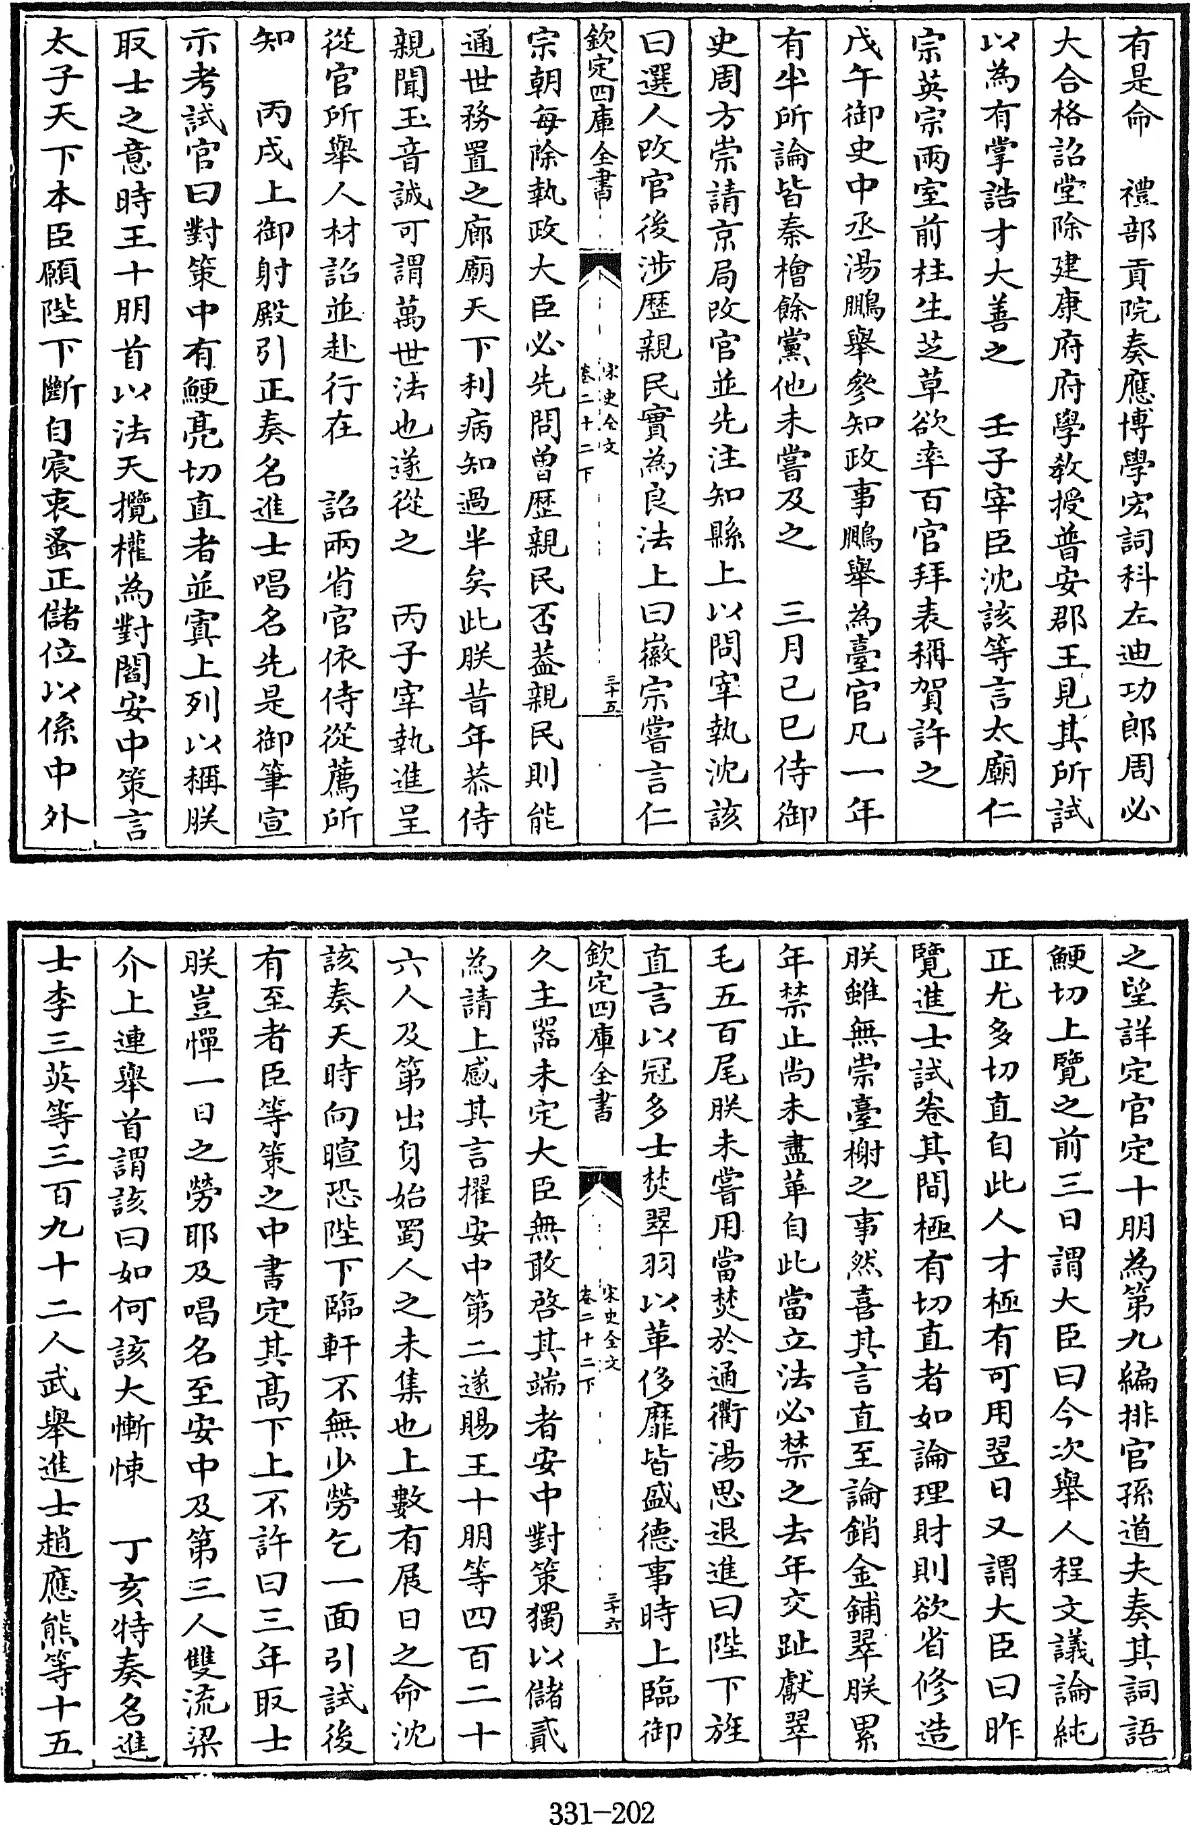 有是命　禮部貢院奏應博學宏詞科左迪功郎周必
大合格詔堂除建康府府學教授普安郡王見其所試
以為有掌誥才大善之　壬子宰臣沈該等言太廟仁
宗英宗兩室前柱生芝草欲率百官拜表稱賀許之
戊午御史中丞湯鵬舉參知政事鵬舉為臺官凡一年
有半所論皆秦檜餘黨他未嘗及之　三月己巳侍御
史周方崇請京局改官並先注知縣上以問宰執沈該
曰選人改官後涉歷親民實為良法上曰徽宗嘗言仁
欽定四庫全書
宋史全文
卷二十二下
三十五
宗朝每除執政大臣必先問曾歷親民否蓋親民則能
通世務置之廊廟天下利病知過半矣此朕昔年恭侍
親聞玉音誠可謂萬世法也遂從之　丙子宰執進呈
從官所舉人材詔並赴行在　詔兩省官依侍從薦所
知　丙戌上御射殿引正奏名進士唱名先是御筆宣
示考試官曰對策中有鯁亮切直者並寘上列以稱朕
取士之意時王十朋首以法天攬權為對閻安中策言
太子天下本臣願陛下斷自宸衷蚤正儲位以係中外
之望詳定官定十朋為第九編排官孫道夫奏其詞語
鯁切上覽之前三日謂大臣曰今次舉人程文議論純
正尤多切直自此人才極有可用翌日又謂大臣曰昨
覽進士試卷其間極有切直者如論理財則欲省修造
朕雖無崇臺榭之事然喜其言直至論銷金鋪翠朕累
年禁止尚未盡革自此當立法必禁之去年交趾獻翠
毛五百尾朕未嘗用當焚於通衢湯思退進曰陛下旌
直言以冠多士焚翠羽以革侈靡皆盛德事時上臨御
欽定四庫全書
宋史全文
卷二十二下
三十六
久主器未定大臣無敢啓其端者安中對策獨以儲貳
為請上感其言擢安中第二遂賜王十朋等四百二十
六人及第出身始蜀人之未集也上數有展日之命沈
該奏天時向暄恐陛下臨軒不無少勞乞一面引試後
有至者臣等策之中書定其高下上不許曰三年取士
朕豈憚一日之勞耶及唱名至安中及第三人雙流梁
介上連舉首謂該曰如何該大慚悚　丁亥特奏名進
士李三英等三百九十二人武舉進士趙應熊等十五
331-202